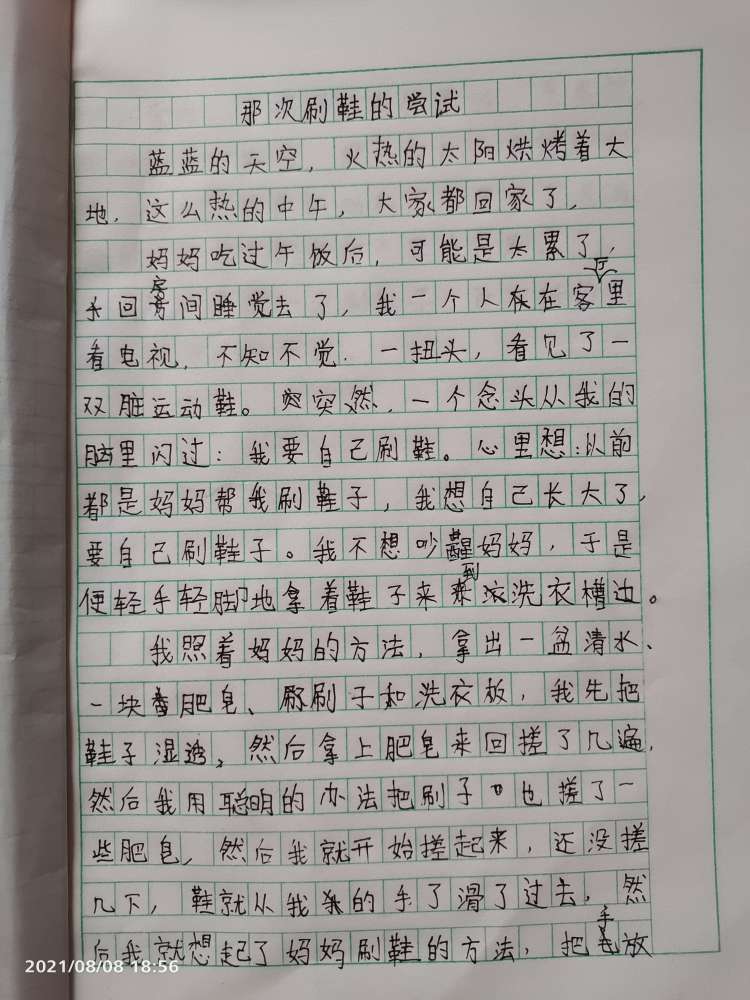 那次刷鞋的尝试
蓝蓝的天空，火热的太阳烘烤着大
地，这么热的中午，大家都回家了，
妈妈吃过午饭后，可能是太累了，
回房间睡觉去了，我一个人在客厅里
看电视，不知不觉，一扭头，看见了一
双脏运动鞋。突然，一个念头从我的
脑里闪过：我要自己刷鞋。心里想：以前
都是妈妈帮我刷鞋子，我想自己长大了，
要自己刷鞋子。我不想吵醒妈妈，于是
便轻手轻脚地拿着鞋子来到洗衣槽边。
我照着妈妈的方法，拿出一盆清水、
一块肥皂、刷子和洗衣板，我先把
鞋子湿透，然后拿上肥皂来回搓了几遍，
然后我用聪明的办法把刷子也搓了一
些肥皂，然后我就开始搓起来，还没搓
几下，鞋就从我的手了滑了过去，然
后我就想起了妈妈刷鞋的方法，把手放
2021/08/08 18:56